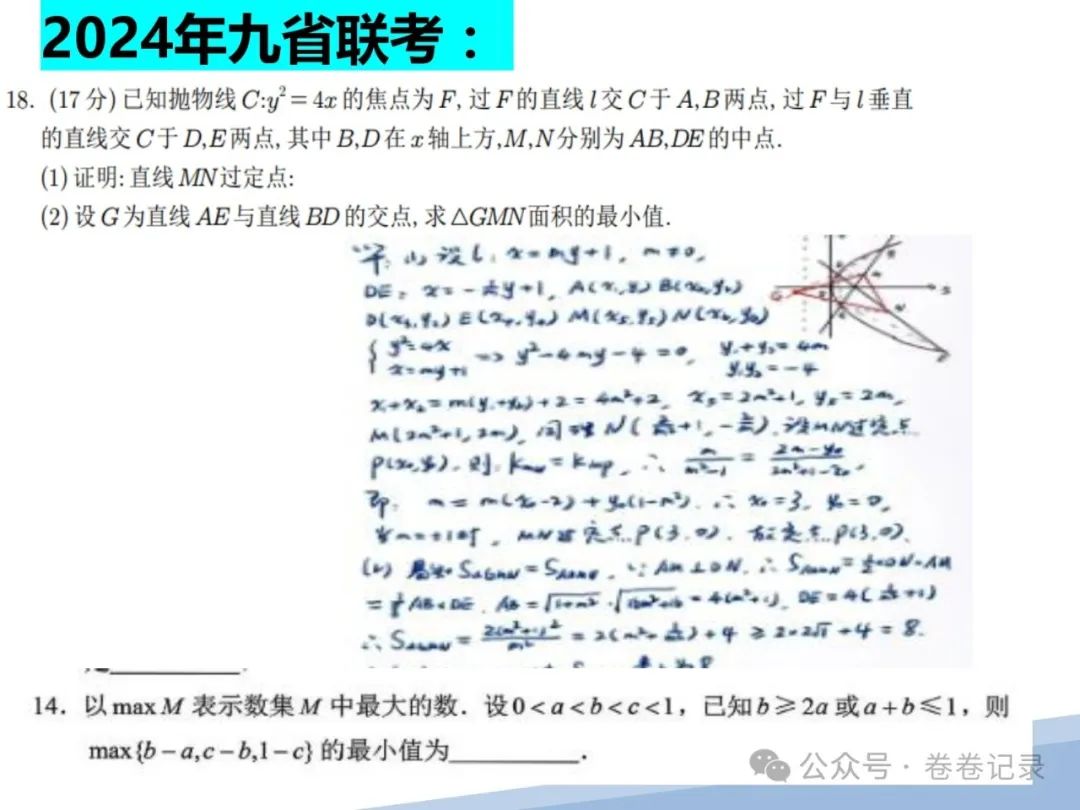 2024年九省联考：
18. (17分)已知抛物线C:y²=4x的焦点为F,过F的直线l交C于A,B两点,过F与l垂直
的直线交C于D,E两点,其中B,D在x轴上方,M,N分别为AB,DE的中点.
(1)证明:直线MN过定点:
(2)设G为直线AE与直线BD的交点,求△GMN面积的最小值.
设l: x=my+1, m≠0,
DE: x=-1/m y+1, A(x₁,y₁) B(x₂,y₂)
D(x₃,y₃) E(x₄,y₄) M(x₅,y₅) N(x₆,y₆)
y²=4x
x=my+1
=> y²-4my-4=0, y₁+y₂=4m
y₁y₂=-4
x₁+x₂=m(y₁+y₂)+2=4m²+2, x₅=2m²+1, y₅=2m,
M(2m²+1,2m), 同理N(2/m²+1,-2/m). 设MN过定点
P(x₀,y₀), 则: ∴ m/(m²-1) =
即: m=m(x₀-2)+y₀(1-m²). ∴ x₀=3, y₀=0,
MN过定点P(3,0). 定点P(3,0).
=4(m²+1), DE=4(1/m²+1)
2(m²+1)²/m² = 2(m²+1/m²)+4 ≥ 2×2√1+4=8.
14. 以max M 表示数集M中最大的数. 设0<a<b<c<1, 已知b≥2a或a+b≤1, 则
max{b-a,c-b,1-c}的最小值为________.
公众号·卷卷记录